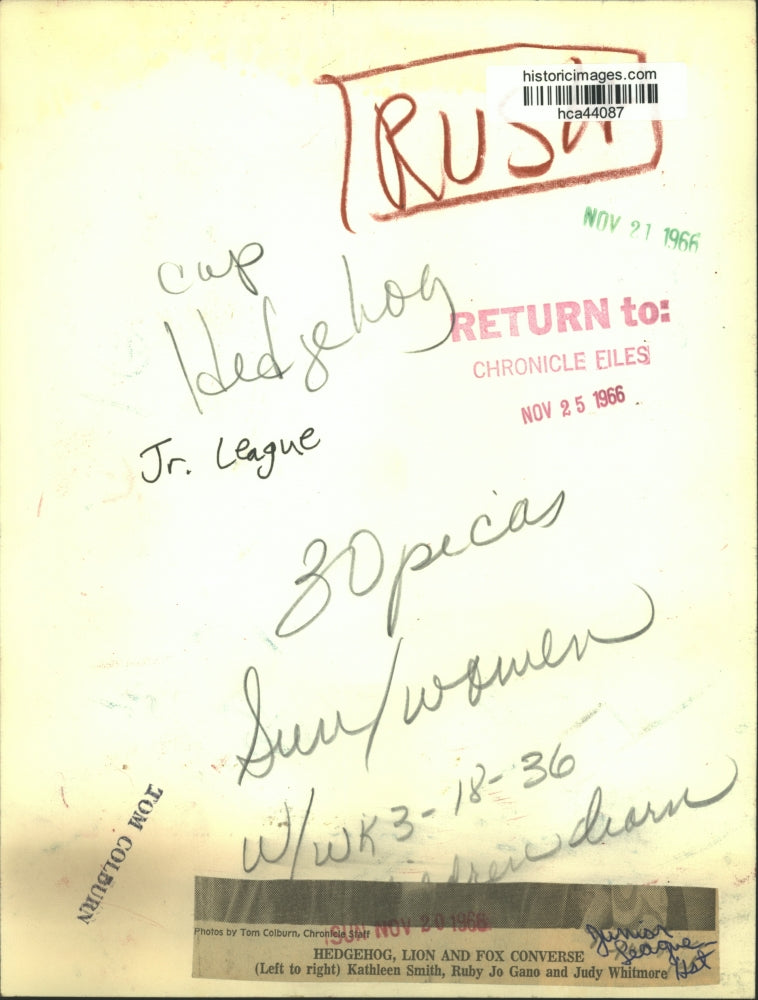 historicimages.com
hca44087
RUSH
NOV 21 1966
cap
Hedgehog
RETURN to:
CHRONICLE FILES
NOV 25 1966
Jr. League
30 picas
Sun/women
W/WK 3-18-36
TOM COLBURN
SUN NOV 20 1966
Photos by Tom Colburn, Chronicle Staff
Junior
League
Hst
HEDGEHOG, LION AND FOX CONVERSE
(Left to right) Kathleen Smith, Ruby Jo Gano and Judy Whitmore